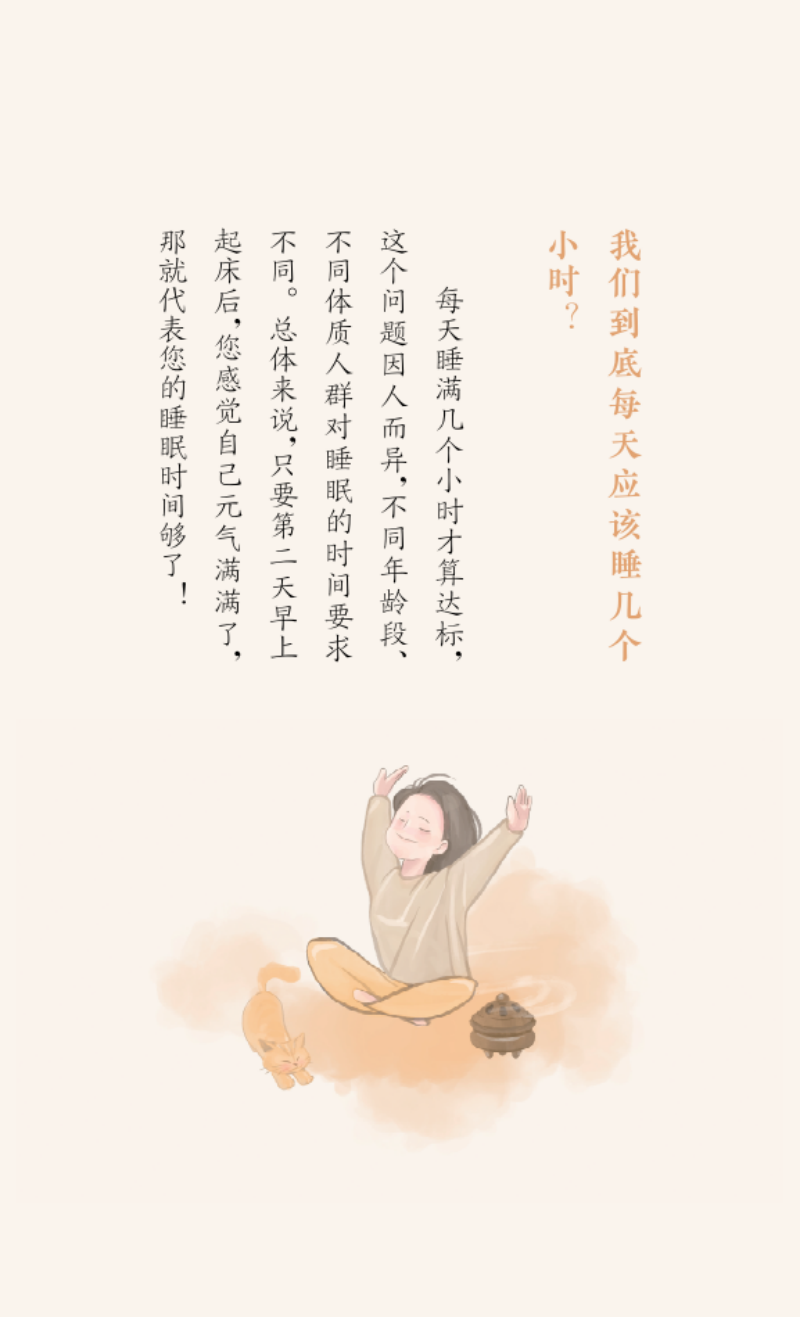 我们到底每天应该睡几个
小时？
每天睡满几个小时才算达标，
这个问题因人而异，不同年龄段、
不同体质人群对睡眠的时间要求
不同。总体来说，只要第二天早上
起床后，您感觉自己元气满满了，
那就代表您的睡眠时间够了！